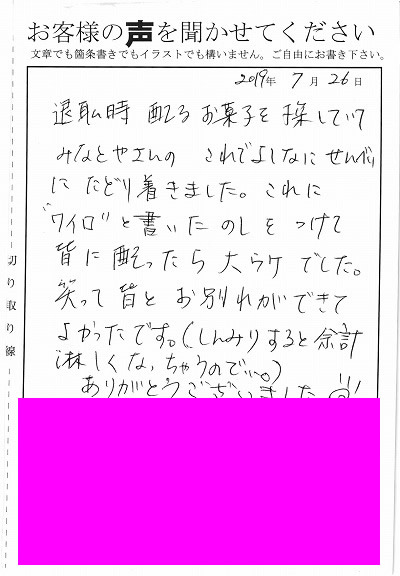 お客様の声を聞かせてください
文章でも箇条書きでもイラストでも構いません。ご自由にお書き下さい。
2019年 7月 26日
退職時 配るお菓子を探していて
みなとやさんの これでよしなにせんべい
にたどり着きました。これに
"ワイロ"と書いたのしをつけて
皆に配ったら大ウケでした。
笑って皆とお別れができて
よかったです。(しんみりすると余計
淋しくなっちゃうので…。)
ありがとうございました
切り取り線